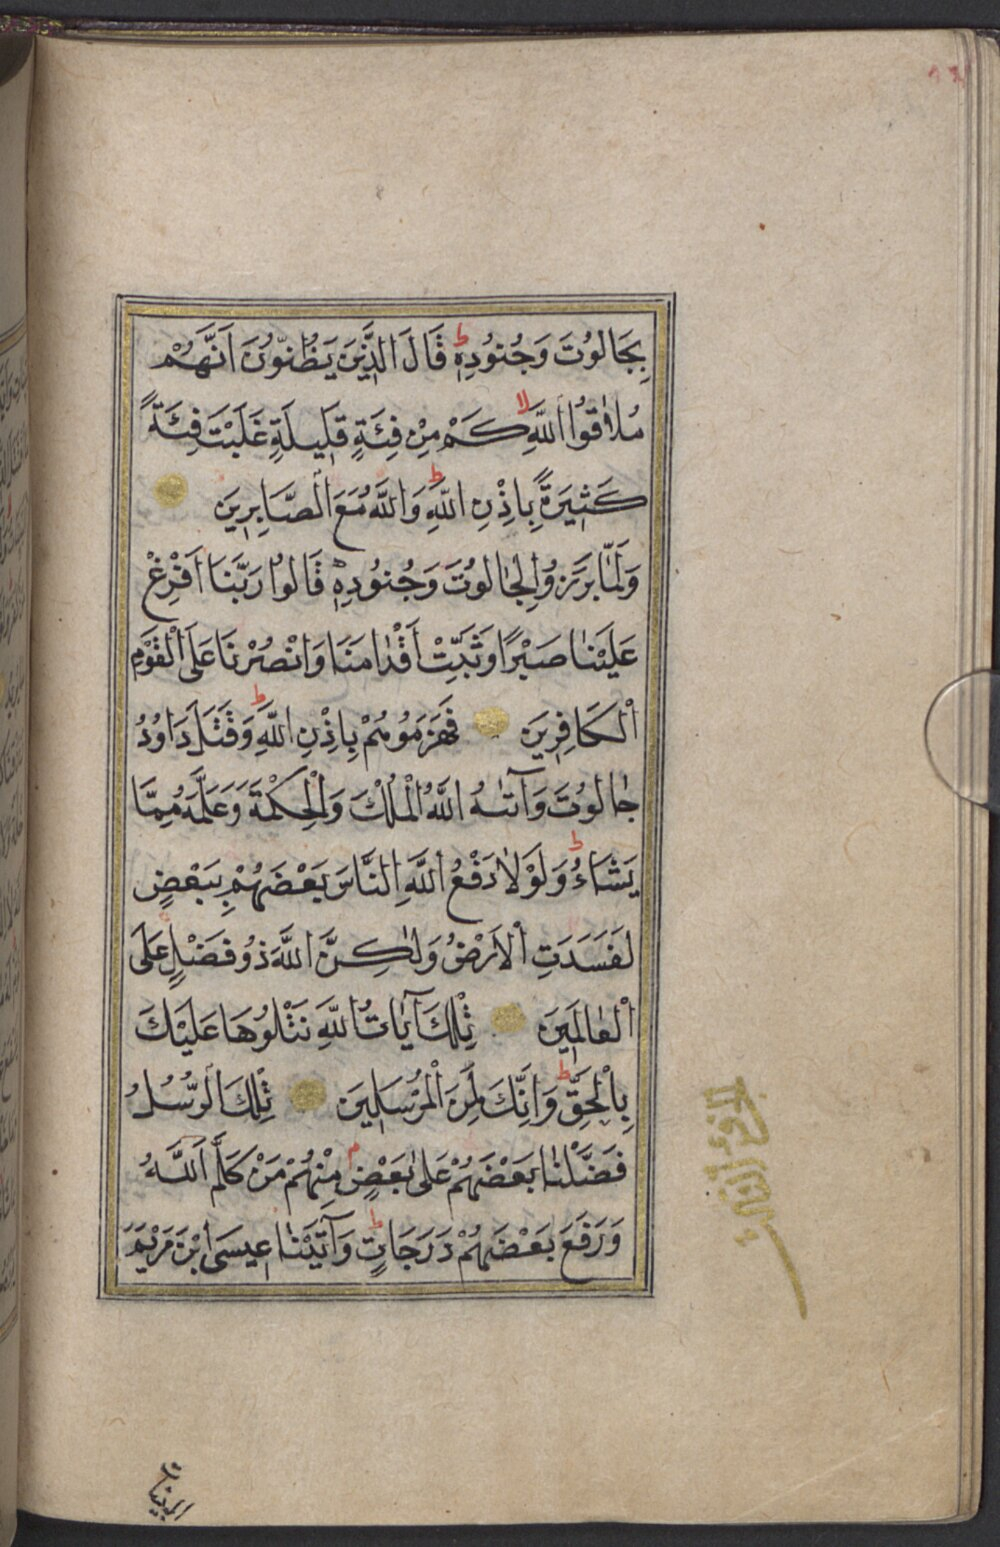 بِجَالُوتَ وَجُنُودِهِ ط قَالَ الَّذِينَ يَظُنُّونَ اَنَّهُمْ
مُلَاقُوا اللَّهِ لا كَمْ مِنْ فِئَةٍ قَلِيلَةٍ غَلَبَتْ فِئَةً
كَثِيرَةً بِاِذْنِ اللَّهِ ط وَاللَّهُ مَعَ الصَّابِرِينَ
وَلَمَّا بَرَزُوا لِجَالُوتَ وَجُنُودِهِ قَالُوا رَبَّنَا اَفْرِغْ
عَلَيْنَا صَبْرًا وَثَبِّتْ اَقْدَامَنَا وَانْصُرْنَا عَلَى الْقَوْمِ
الْكَافِرِينَ فَهَزَمُوهُمْ بِاِذْنِ اللَّهِ ط وَقَتَلَ دَاوُدُ
جَالُوتَ وَآتٰيهُ اللَّهُ الْمُلْكَ وَالْحِكْمَةَ وَعَلَّمَهُ مِمَّا
يَشَاءُ ط وَلَوْلَا دَفْعُ اللَّهِ النَّاسَ بَعْضَهُمْ بِبَعْضٍ
لَفَسَدَتِ الْاَرْضُ وَلٰكِنَّ اللَّهَ ذُو فَضْلٍ عَلَى
الْعَالَمِينَ تِلْكَ آيَاتُ اللَّهِ نَتْلُوهَا عَلَيْكَ
بِالْحَقِّ ط وَاِنَّكَ لَمِنَ الْمُرْسَلِينَ تِلْكَ الرُّسُلُ
فَضَّلْنَا بَعْضَهُمْ عَلٰى بَعْضٍ م مِنْهُمْ مَنْ كَلَّمَ اللَّهُ
وَرَفَعَ بَعْضَهُمْ دَرَجَاتٍ ط وَآتَيْنَا عِيسَى ابْنَ مَرْيَمَ
الجزء الثالث
البينات